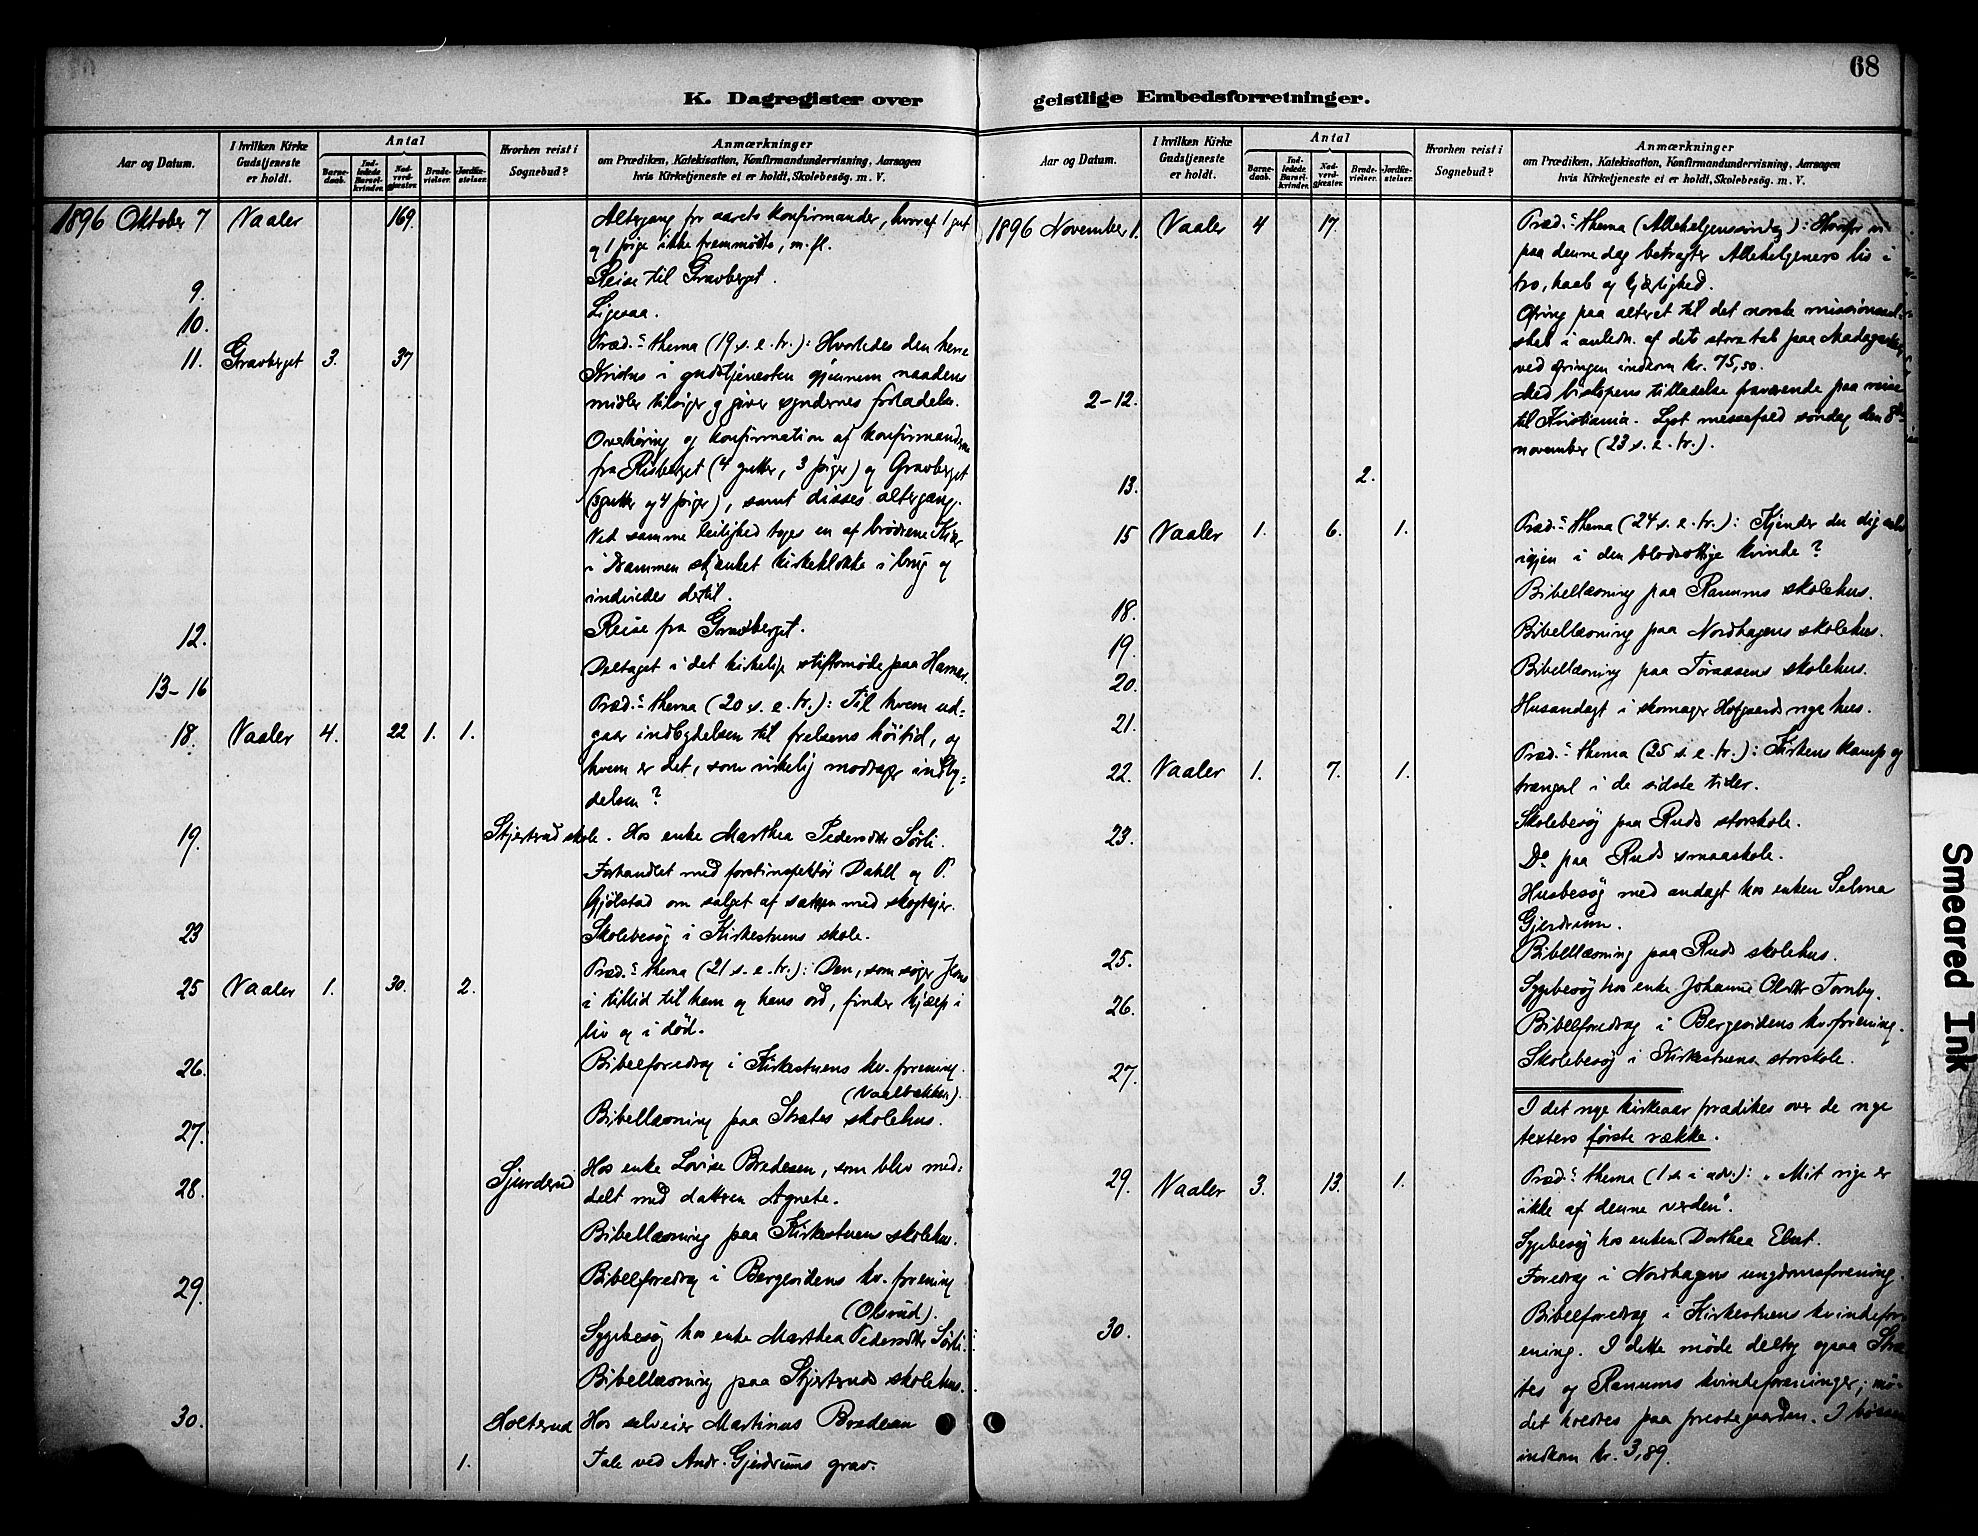 68
K. Dagregister over geistlige Embedsforretninger.
Aar og Datum.
I hvilken Kirke Gudstjeneste er holdt.
Antal
Barnedaab.
Indledede Barselkvinder.
Nadverdgjæster.
Brudevielser.
Jordfæstelser.
Hvorhen reist i Sognebud?
Anmærkninger
om Prædiken, Katekisation, Konfirmandundervisning, Aarsagen
hvis Kirketjeneste ei er holdt, Skolebesøg. m. V.
1896 Oktober 7 Vaaler 169. Altergang for aarets konfirmander, hvoraf 1 gut
og 1 pige ikke fremmødte, m. fl.
9. Reise til Gravberget.
10. Ligesaa.
11. Gravberget 3. 37 Præd.s thema (19 s. e. tr.): Hvorledes den herre
Kristus i gudstjenesten gjennem naadens
midler tilsiger og giver syndernes forladelse.
Overhøring og konfirmation af konfirmanderne
fra Risberget (4 gutter, 3 piger) og Gravberget
(3 gutter og 4 piger), samt disses altergang.
Ved samme leilighed toges en af brødrene Kiær
i Drammen skjænket kirkeklokke i brug og
indviedes dertil.
12. Reise fra Gravberget.
13-16 Deltaget i det kirkelige stiftsmøde paa Hamar.
18. Vaaler 4. 22 1. 1. Præd.s thema (20 s. e. tr.): Til hvem ud=
gaar indbydelsen til frelsens høitid, og
hvem er det, som virkelig modtager indby=
delsen?
19. Skjertrud skole. Hos enke Marthea Pedersdtr Sørli.
Forhandlet med forstinspektør Dahll og P.
Gjølstad om salget af sætren med skogteier.
23 Skolebesøg i Kirkestuens skole.
25 Vaaler 1. 30. 2. Præd.s thema (21 s. e. tr.): Den, som søger Jesus
i tillid til ham og hans ord, finder hjælp i
liv og i død.
26. Bibelforedrag i Kirkestuens kv. forening
(Vaalbakken).
27. Bibellæsning paa Strætes skolehus.
28. Sjurderud Hos enke Lovise Bredesen, som blev med=
delt med datteren Agnete.
Bibellæsning paa Kirkestuens skolehus.
29. Bibelforedrag i Bergesidens kv. forening
(Olsrud).
Sygebesøg hos enke Marthea Pedersdtr Sørli.
Bibellæsning paa Skjertruds skolehus.
30. Holterud Hos selveier Martinus Bredesen
1. Tale ved Andr. Gjerdrums grav.
Aar og Datum.
I hvilken Kirke Gudstjeneste er holdt.
Antal
Barnedaab.
Indledede Barselkvinder.
Nadverdgjæster.
Brudevielser.
Jordfæstelser.
Hvorhen reist i Sognebud?
Anmærkninger
om Prædiken, Katekisation, Konfirmandundervisning, Aarsagen
hvis Kirketjeneste ei er holdt, Skolebesøg. m. V.
1896 November 1. Vaaler 4 17. Præd.s thema (Allehelgenssøndag): Hvorfor vi
paa denne dag betragter Allehelgeners liv i
tro, haab og kjærlighed.
Ofring paa alteret til det norske missionssel-
skab i anledn. af dets store tab paa Madagaskar
ved ofringen indkom kr. 75,50.
2-12. Med biskopens tilladelse fraværende paa reise
til Kristiania. Lyst messefald søndag den 8de
november (23 s. e. tr.).
13. 2.
15 Vaaler 1. 6. 1. Præd.s thema (24 s. e. tr.): Kjender du dig selv
igjen i den blodsottige kvinde?
18. Bibellæsning paa Ranums skolehus.
19. Bibellæsning paa Nordhagens skolehus.
20. Bibellæsning paa Toraasens skolehus.
21. Husandagt i skomager Hofgaards nye hus.
22. Vaaler 1. 7. 1. Præd.s thema (25 s. e. tr.): Kirkens kamp og
trængsel i de sidste tider.
23. Skolebesøg paa Ruds storskole.
Do. paa Ruds smaaskole.
Husbesøg med andagt hos enken Selma
Gjerdrum.
25. Bibellæsning paa Ruds skolehus.
26. Sygebesøg hos enke Johanne Olsdtr Tornby.
Bibelforedrag i Bergesidens kv. forening.
27. Skolebesøg i Kirkestuens storskole.
I det nye kirkeaar prædikes over de nye
texters første række.
29. Vaaler 3. 13. 1. Præd.s thema (1 s. i adv.): "Mit rige er
ikke af denne verden".
Sygebesøg hos enken Dorthea Ebert.
Foredrag i Nordhagens ungdomsforening.
30. Bibelforedrag i Kirkestuens kvindefor
ening. I dette møde deltog ogsaa Stræ
tes og Ranums kvindeforeninger; mø-
det holdtes paa prestegaarden. I bøssen
indkom kr. 3,89.
Smeared Ink